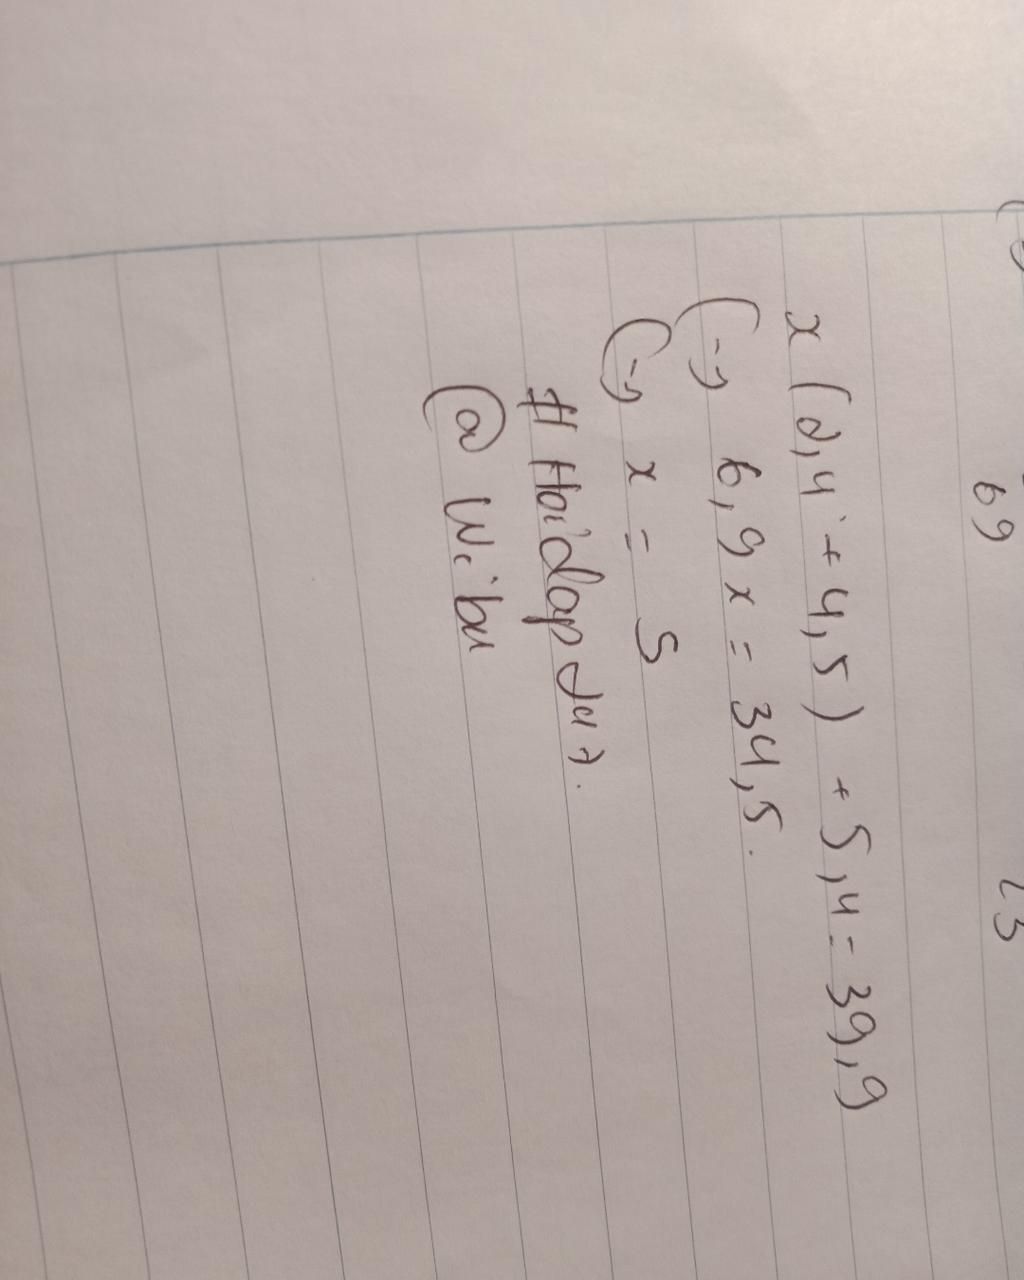 69 23
x (2,4 + 4,5) + 5,4 = 39,9
(=) 6,9 x = 34,5.
(=) x = 5
# Hoidap 247.
@ Wibu